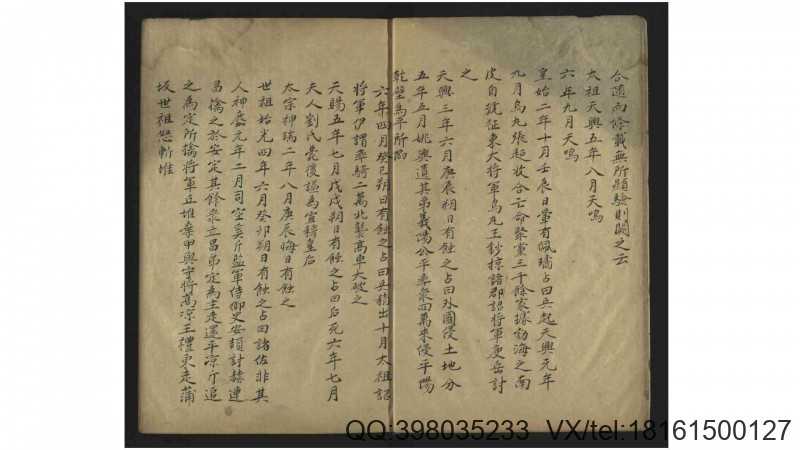 合道而條載無所顯驗則闕之云
太祖天興五年八月天鳴
六年九月天鳴
皇始二年十月壬辰日暈有佩璚占曰兵起天興元年
九月烏丸張超收合亡命聚黨三千餘家據勃海之南
皮自號征東大將軍烏丸王鈔掠諸郡詔將軍庾岳討
之
天興三年六月庚辰朔日有蝕之占曰外國侵土地分
五年五月姚興遣其弟義陽公平率衆四萬來侵平陽
乾壁為平所陷
六年四月癸巳朔日有蝕之占曰兵稍出十月太祖詔
將軍伊謂率騎二萬北襲高車大破之
天賜五年七月戊戌朔日有蝕之占曰后死六年七月
夫人劉氏薨後謚為宣穆皇后
太宗神瑞二年八月庚辰晦日有蝕之
世祖始光四年六月癸卯朔日有蝕之占曰諸佐非其
人神䴥元年二月司空奚斤監軍侍御史安頡討赫連
昌擒之於安定其餘衆立昌弟定為主走還平涼斤追
之為定所擒將軍丘堆棄甲與守將高涼王禮東走蒲
坂世祖怒斬堆
QQ:398035233 VX/tel:18161500127